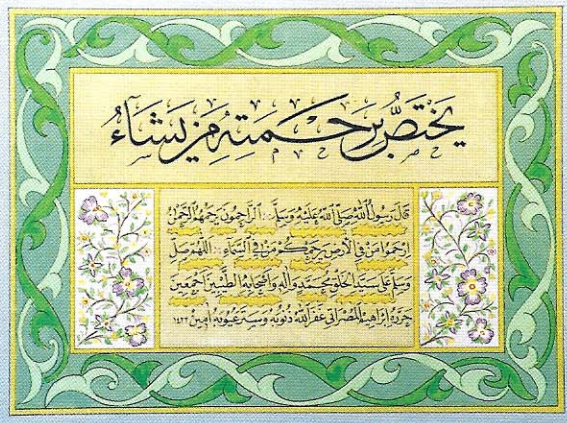 يَخْتَصُّ بِرَحْمَتِهِ مَن يَشَاءُ
قَالَ رَسُولُ اللهِ صَلَّى اللهُ عَلَيْهِ وَسَلَّمَ: الرَّاحِمُونَ يَرْحَمُهُمُ الرَّحْمٰنُ
اِرْحَمُوا مَنْ فِي الْأَرْضِ يَرْحَمْكُمْ مَنْ فِي السَّمَاءِ: اللّٰهُمَّ صَلِّ
وَسَلِّمْ عَلَى سَيِّدِ الْخَلْقِ مُحَمَّدٍ وَآلِهِ وَأَصْحَابِهِ الطَّيِّبِينَ أَجْمَعِينَ
حَرَّرَهُ اِبْرَاهِيمُ الْمِصْرَاتِي غَفَرَ اللهُ ذُنُوبَهُ وَسَتَرَ عُيُوبَهُ امِينْ ١٤٢٢